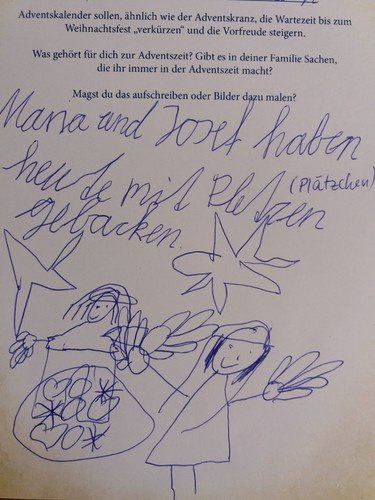 Adventskalender sollen, ähnlich wie der Adventskranz, die Wartezeit bis zum
Weihnachtsfest „verkürzen“ und die Vorfreude steigern.
Was gehört für dich zur Adventszeit? Gibt es in deiner Familie Sachen,
die ihr immer in der Adventszeit macht?
Magst du das aufschreiben oder Bilder dazu malen?
Maria und Josef haben
heute mit Pletzen (Plätzchen)
gebacken.